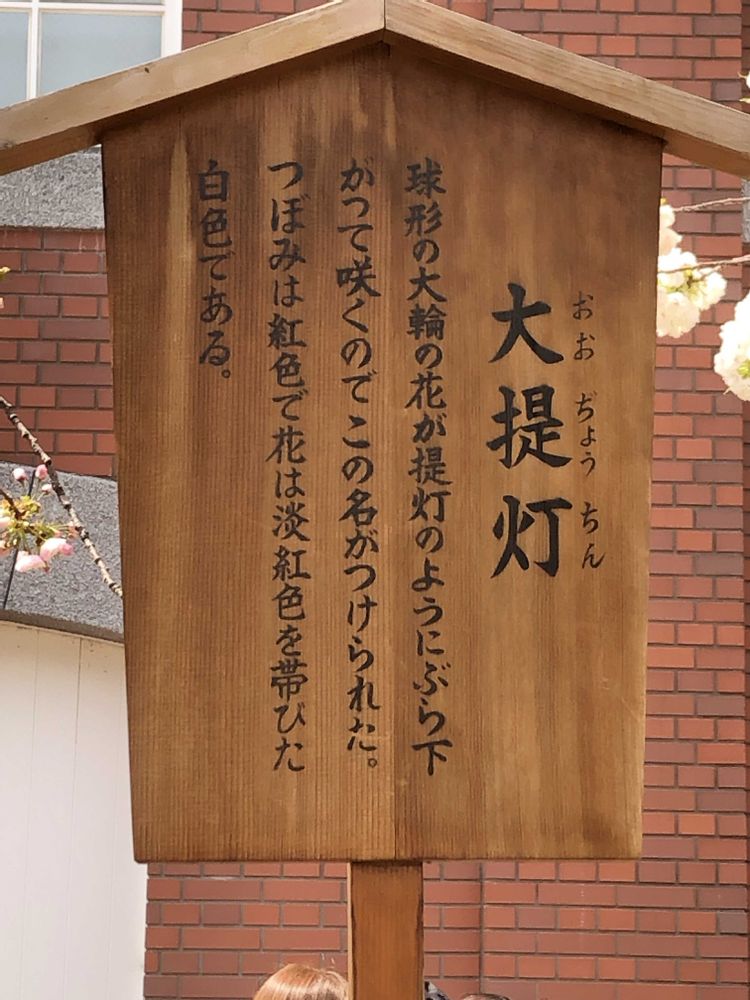 おおぢょうちん
大提灯
球形の大輪の花が提灯のようにぶら下
がって咲くのでこの名がつけられた。
つぼみは紅色で花は淡紅色を帯びた
白色である。